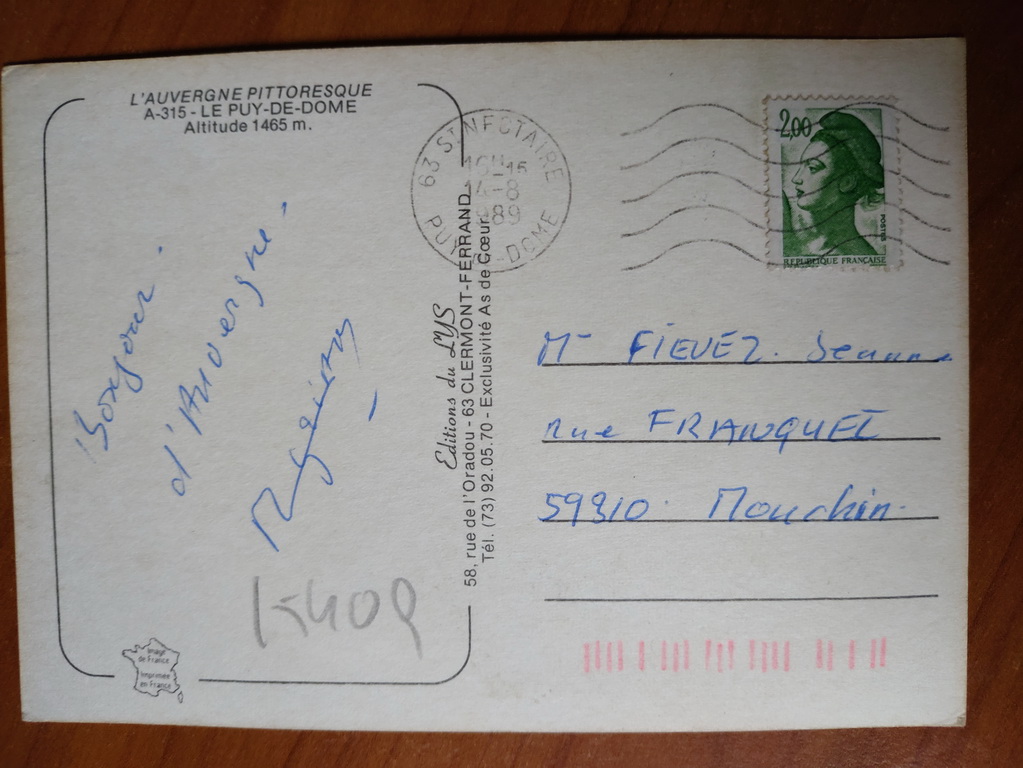 L'AUVERGNE PITTORESQUE
A-315 - LE PUY-DE-DOME
Altitude 1465 m.
Bonjour
d'Auvergne
15409
Image
de France
Imprimée
en France
Editions du LYS
58, rue de l'Oradou - 63 CLERMONT-FERRAND
Tél. (73) 92.05.70 - Exclusivité As de Cœur
63 ST NECTAIRE
-8
1989
PUY-DE-DOME
2,00
POSTES
REPUBLIQUE FRANÇAISE
FIEVEZ. Jeanne
rue FRANQUET
59310 Mouchin